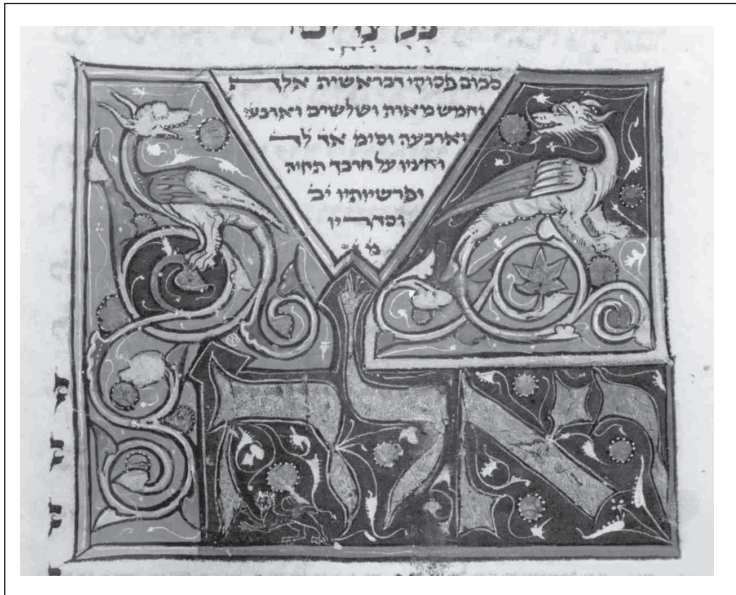 סכום פסוקי דבראשית אלף
וחמש מאות ושלשים וארבע
וארבעה וסימ' אך לד
וחציו על חרבך תחיה
ופרשיותיו יב
וסדריו
אלה